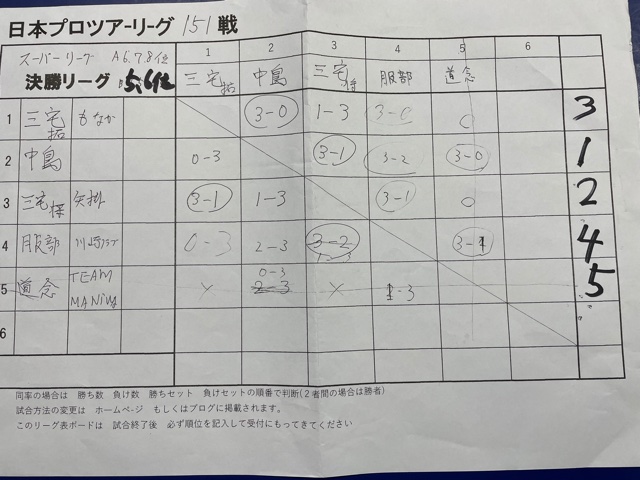 日本プロツアーリーグ 151 戦
スーパーリーグ A6.7.8位
決勝リーグ 5,6位
1 2 3 4 5 6
三宅拓 中島 三宅 服部 道念
1 三宅拓 もなか 3-0 1-3 3-0 3
2 中島 0-3 3-1 3-2 3-0 1
3 三宅 矢掛 3-1 1-3 3-1 2
4 服部 0-3 2-3 3-2 3-1 4
5 道念 TEAM MANiWA × 0-3 2-3 × 1-3 5
6
同率の場合は 勝ち数 負け数 勝ちセット 負けセットの順番で判断(2者間の場合は勝者)
試合方法の変更は ホームページ もしくはブログに掲載されます。
このリーグ表ボードは 試合終了後 必ず順位を記入して受付にもってきてください